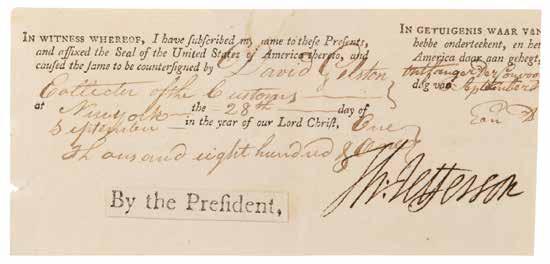 IN WITNESS WHEREOF, I have subscribed my name to these Presents,
and affixed the Seal of the United States of America thereto, and
caused the same to be countersigned by David Gelston
Collector of the Customs
at New York the 28th day of
September in the year of our Lord Christ, One
Thousand eight hundred & One
Th: Jefferson
By the President,
IN GETUIGENIS WAAR VAN
hebbe onderteekent, en het
America daar aan gehegt,
dag van September